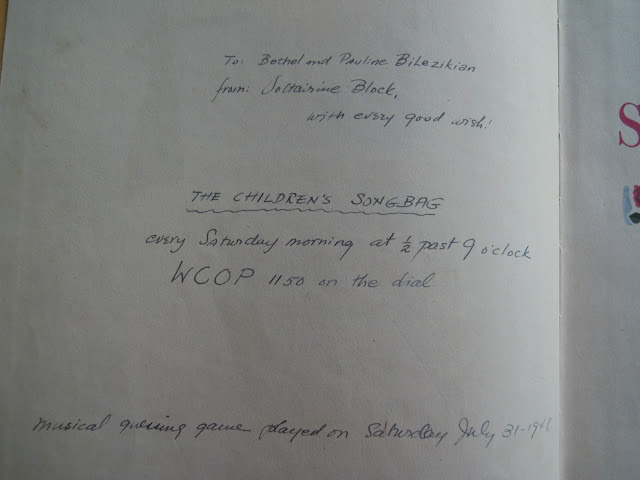 To: Bethel and Pauline Bilezikian
from: Voltairine Block,
with every good wish!
THE CHILDREN'S SONGBAG
every Saturday morning at ½ past 9 o'clock
WCOP 1150 on the dial
musical guessing game played on Saturday July 31-19
S